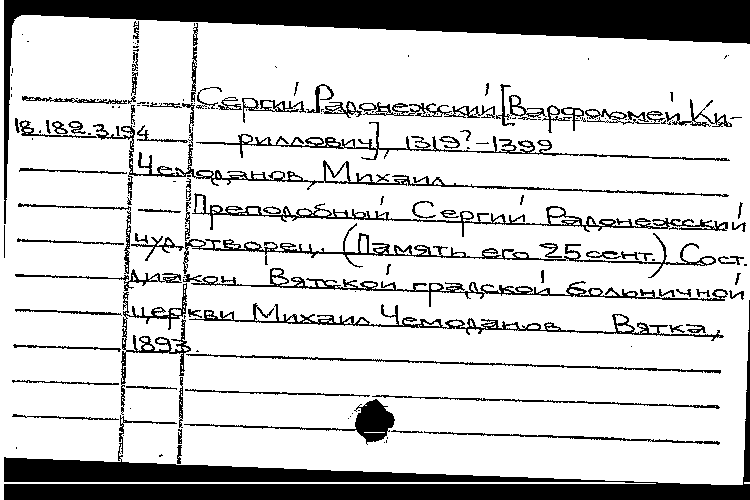 Сергий Радонежский [Варфоломей Ки-
18.182.3.194
риллович], 1319?-1399
Чемоданов, Михаил.
Преподобный Сергий Радонежский
чудотворец. (Память его 25 сент.) Сост.
диакон Вятской градской больничной
церкви Михаил Чемоданов Вятка,
1893.